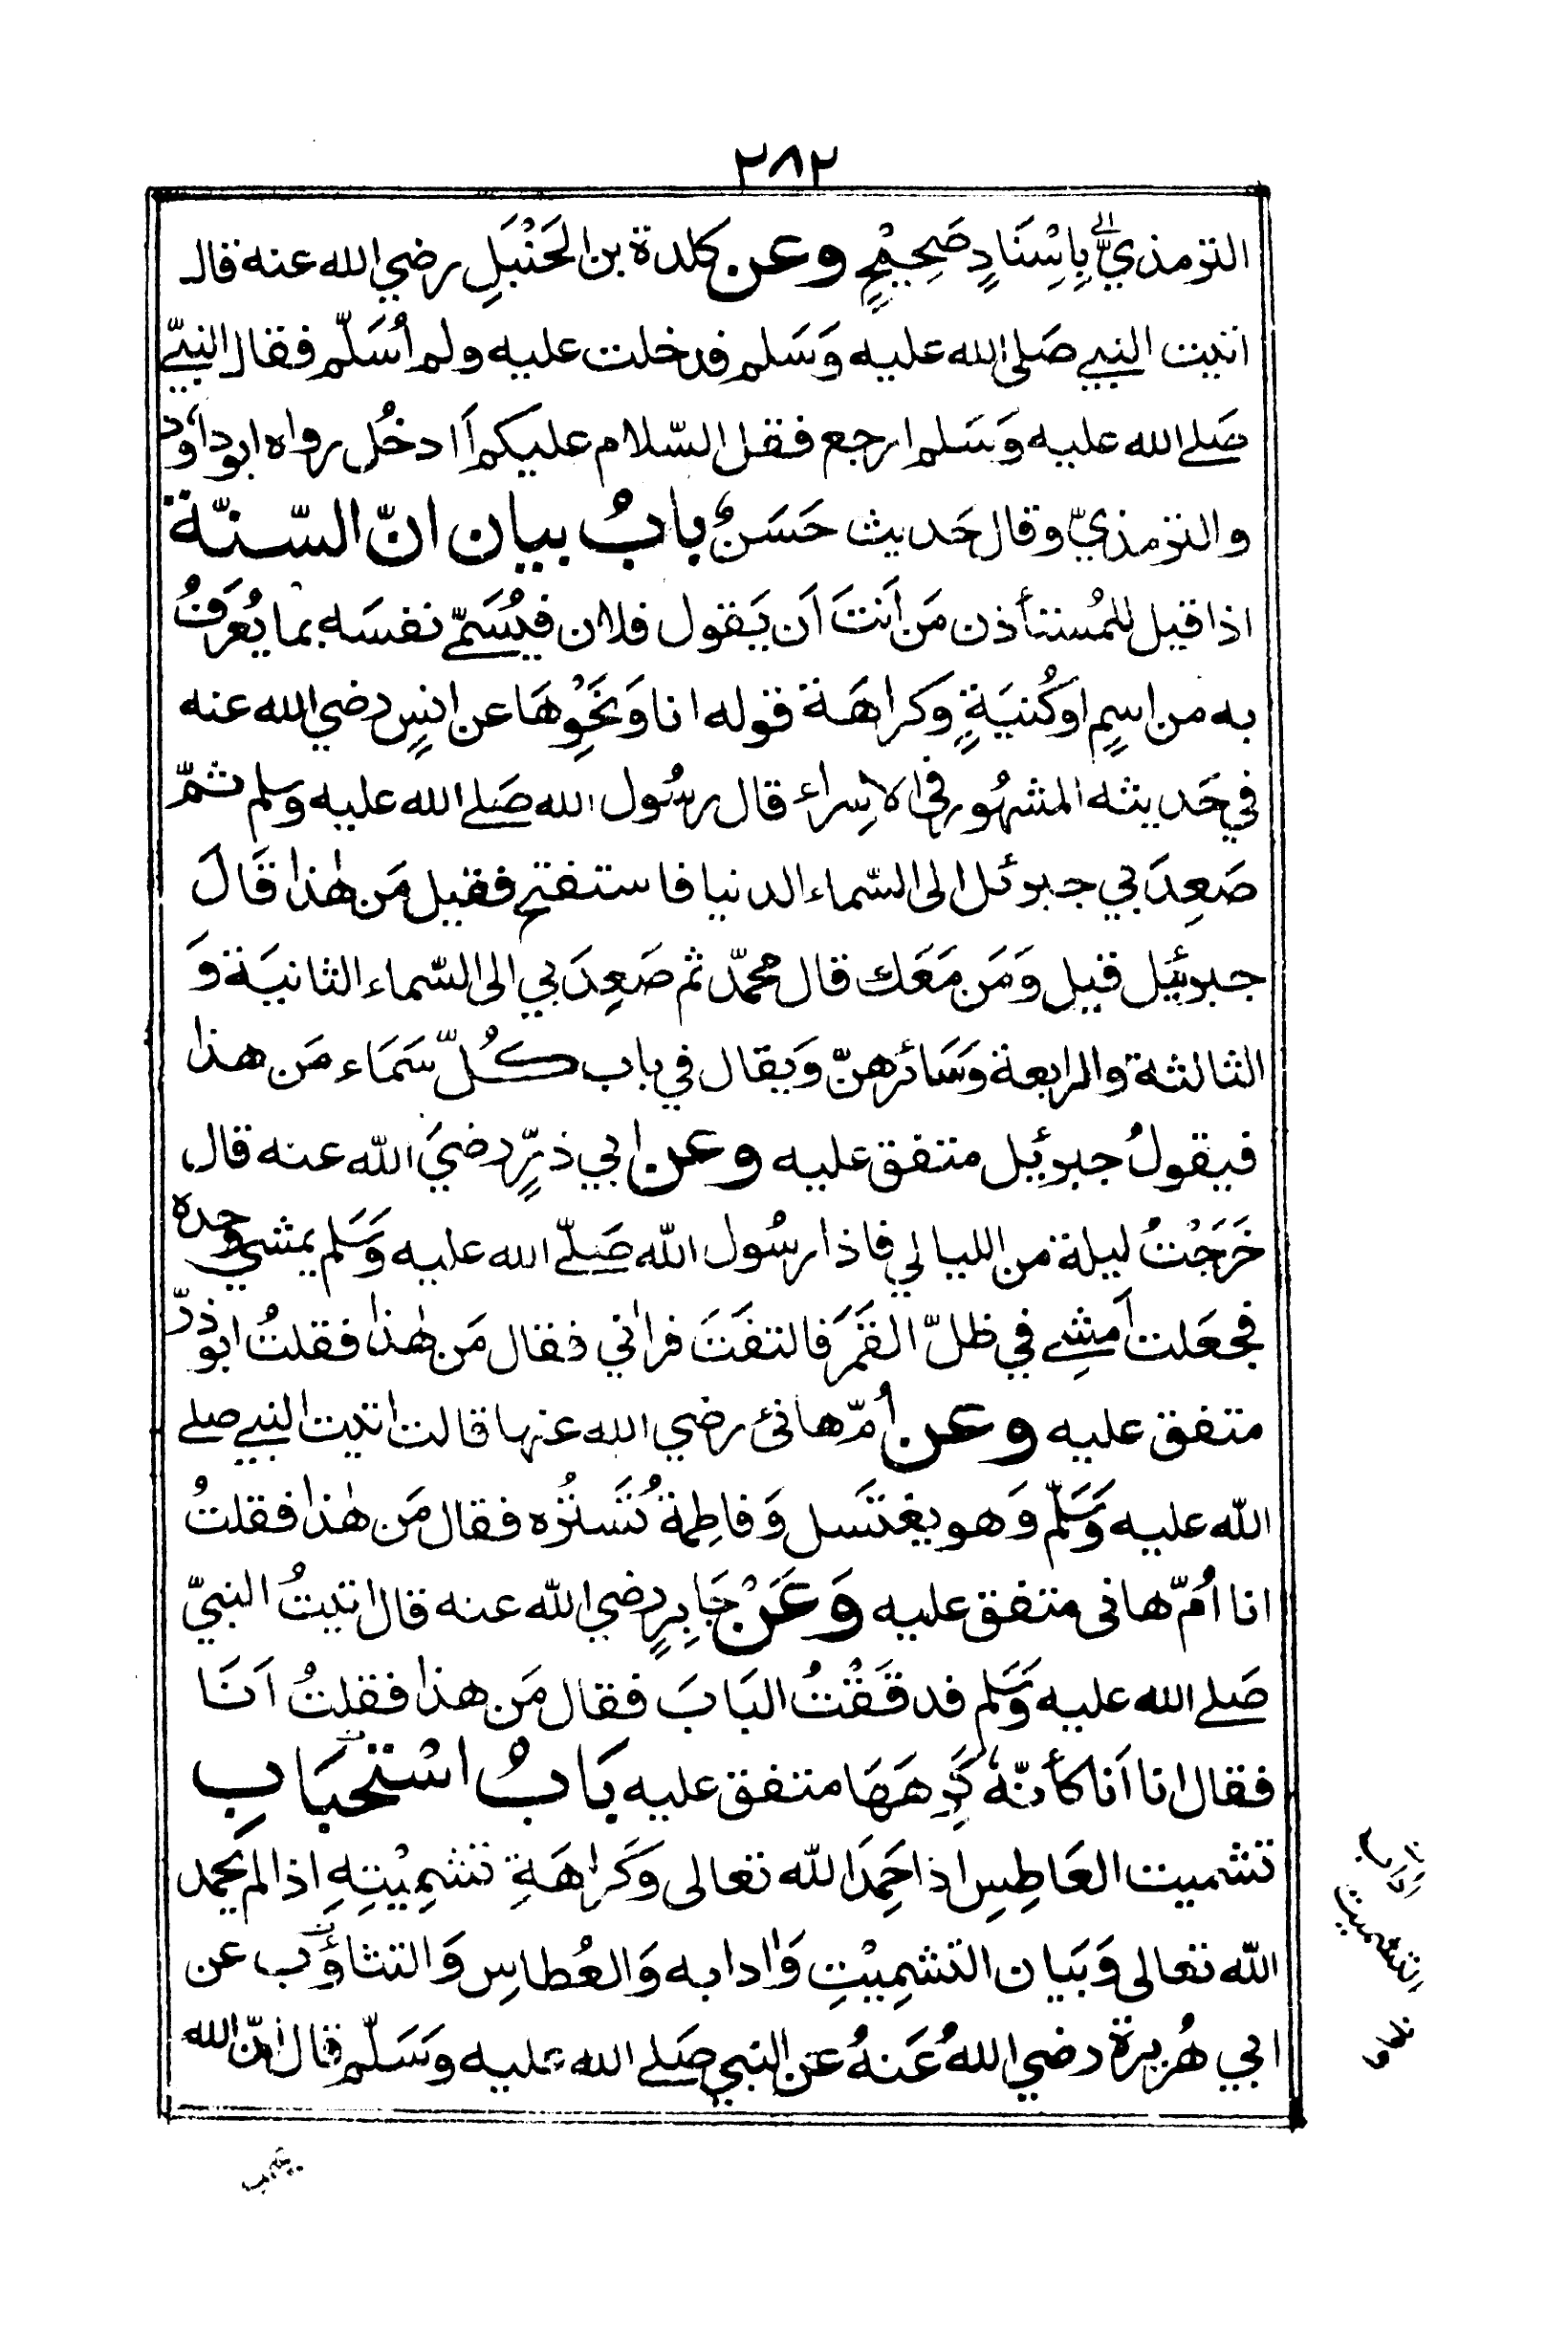 ٢٨٢
الترمذيّ بِاِسْنَادٍ صَحِيْحٍ وعن كلدة بن الحَنْبَلِ رضي الله عنه قال
اتيت النبي صَلى الله عليه وَسَلم فدخلت عليه ولم اُسَلّم فقال النبيّ
صَلے الله عليه وَسَلم ارجع فقل السّلام عليكم اَادخُل رواه ابوداؤد
والترمذيّ وقال حَديث حَسَنٌ بابُ بيان انّ السّنّة
اذا قيل للمُستأذن مَن اَنتَ اَن يَقول فلان فيُسَمّي نفسَه بما يُعرَفُ
به من اسمٍ اوكُنيَةٍ وَكراهَة قوله انا وَنَحْوِهَا عن انسٍ رضي الله عنه
في حَديثه المشهُور في الاسراء قال رسُول الله صَلے الله عليه وَسلم ثمّ
صَعِدَ بي جبرئل الى السّماء الدنيا فاستفتح فقيل مَن هٰذا قَالَ
جبرئيل قيل وَمَن مَعَك قال محمّد ثم صَعِدَ بي الى السّماء الثانيَة وَ
الثالثة والرابعة وَسَائرهنّ وَيقال في باب كُلّ سَمَاء مَن هذا
فيقولُ جبرئيل متفق عليه وعن ابي ذرٍّ رضيَ الله عنه قال
خَرَجْتُ ليلة من الليالي فاذا رسُول الله صَلّے الله عليه وَسَلم يمشي وحده
فجعَلت اَمشِے في ظلّ القَمَر فالتفَتَ فراٰني فقال مَن هٰذا فقلتُ ابوذرّ
متفق عليه وعن اُمّ هانئ رضي الله عنها قالت اتيت النبي صلے
الله عليه وَسَلّم وَهو يغتَسل وَفاطِمة تُسَترُه فقال مَن هٰذا فقلتُ
انا اُمّ هانى متفق عليه وَعَنْ جَابِرٍ رضي الله عنه قال اتيتُ النبيّ
صَلے الله عليه وَسَلم فدقَقْتُ البَابَ فقال مَن هذا فقلتُ اَنَا
فقال انا اَنا كأنّهٗ كَرِهَهَا متفق عليه بَابُ اسْتحْبَابِ
تشميت العَاطِسِ اذا حَمِدَ الله تعالى وَكَراهَةِ تشمِيْتِهِ اذا لم يحمد
الله تعالى وَبَيان التشمِيْتِ وَاٰدابه وَالعُطاسِ وَالتثاؤَب عن
ابي هُريرة رضي اللهُ عَنهُ عَن النبي صَلے الله عليه وَسَلّم قال اِنّ الله
اٰداب
التشميت
يحب